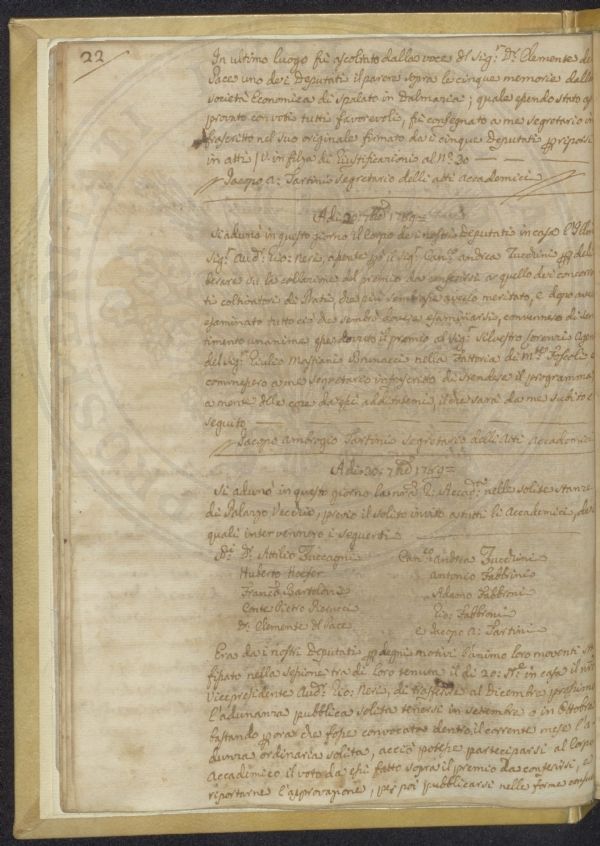 22
In ultimo luogo fù ascoltato dalla voce del Sig.r D.r Clemente del
Pace uno dei Deputati il parere sopra le cinque memorie dalla
Società Economica di Spalato in Dalmazia; quale essendo stato ap
provato con voti tutti favorevoli, fù consegnato a me segretario in
frascritto nel suo originale firmato da i cinque Deputati per riporsi
in atti, V. in filza di Giustificazioni al N.o 30
Jacopo A: Tartini Segretario delli atti Accademici
A di 20: 7bre 1769=
Si adunò in questo giorno il Corpo dei nostri Deputati in casa l'Ill.mo
Sig.r Aud.r Gio: Neri, assente il Sig.r Can.co Andrea Zucchini per deli
berare su la collazione del premio da conferirsi a quello dei concorren
ti coltivatori di Prati che più sembrasse averlo meritato, e dopo aver
esaminato tutto ciò che sembrò dovere esaminarsi, convennero di sen
timento unanime esser dovuto il premio al Sig.r Silvestro Lorenzi Agente
del Sig.r Giulio Mastiani Brunacci nella Fattoria di M.te Foscoli e
commessero a me Segretario infrascritto di stendere il programma
a mente delle cose da essi additatemi, il che sarà da me subito e
seguito
Jacopo Ambrogio Tartini Segretario delli Atti Accademici
A di 30: 7bre 1769=
Si adunò in questo giorno la nostra R. Accad.a nelle solite stanze
di Palazzo Vecchio, previo il solito invito a tutti li Accademici, dei
quali intervennero i seguenti
SS.ri D.r Attilio Zuccagni
Can.co Andrea Zucchini
Huberto Hoefer
Antonio Fabbrini
Franc.o Bartoloni
Adamo Fabbroni
Conte Pietro
Gio: Fabbroni
D.r Clemente del Pace
e Jacopo A: Tartini
Era da i nostri Deputati per degni motivi l'animo loro moventi sta
fissato nella sessione tra di loro tenuta il dì 20: 7bre in casa il nostro
Vicepresidente Aud.r Gio: Neri, di trasferire al Dicembre prossimo
l'adunanza pubblica solita tenersi in settembre o in Ottobre
bastando per ora che fosse convocata dentro il corrente mese l'a
dunanza ordinaria solita, acciò potesse parteciparsi al Corpo
Accademico il voto da essi fatto sopra il premio da conferirsi, e
riportarne l'approvazione, per poi pubblicarsi nelle forme consuete